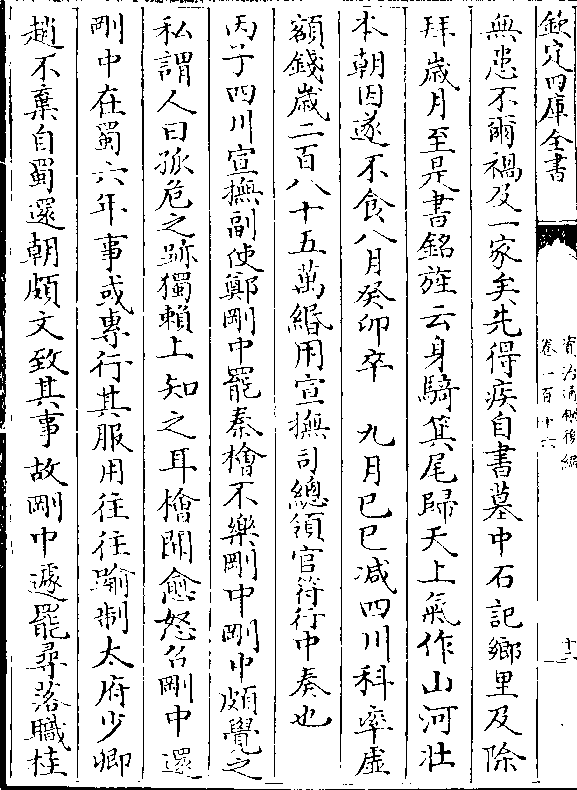 欽定四庫全書
資治通鑑後編
卷一百十六
十二
無患不爾禍及一家矣先得疾自書墓中石記鄉里及除
拜歲月至是書銘旌云身騎箕尾歸天上氣作山河壯
本朝因遂不食八月癸卯卒 九月己巳減四川科率虛
額錢歲二百八十五萬緡用宣撫司總領官符行中奏也
丙子四川宣撫副使鄭剛中罷秦檜不樂剛中剛中頗覺之
私謂人曰孤危之跡獨賴上知之耳檜聞愈怒召剛中還
剛中在蜀六年事或專行其服用往往踰制太府少卿
趙不棄自蜀還朝頗文致其事故剛中遽罷尋落職桂